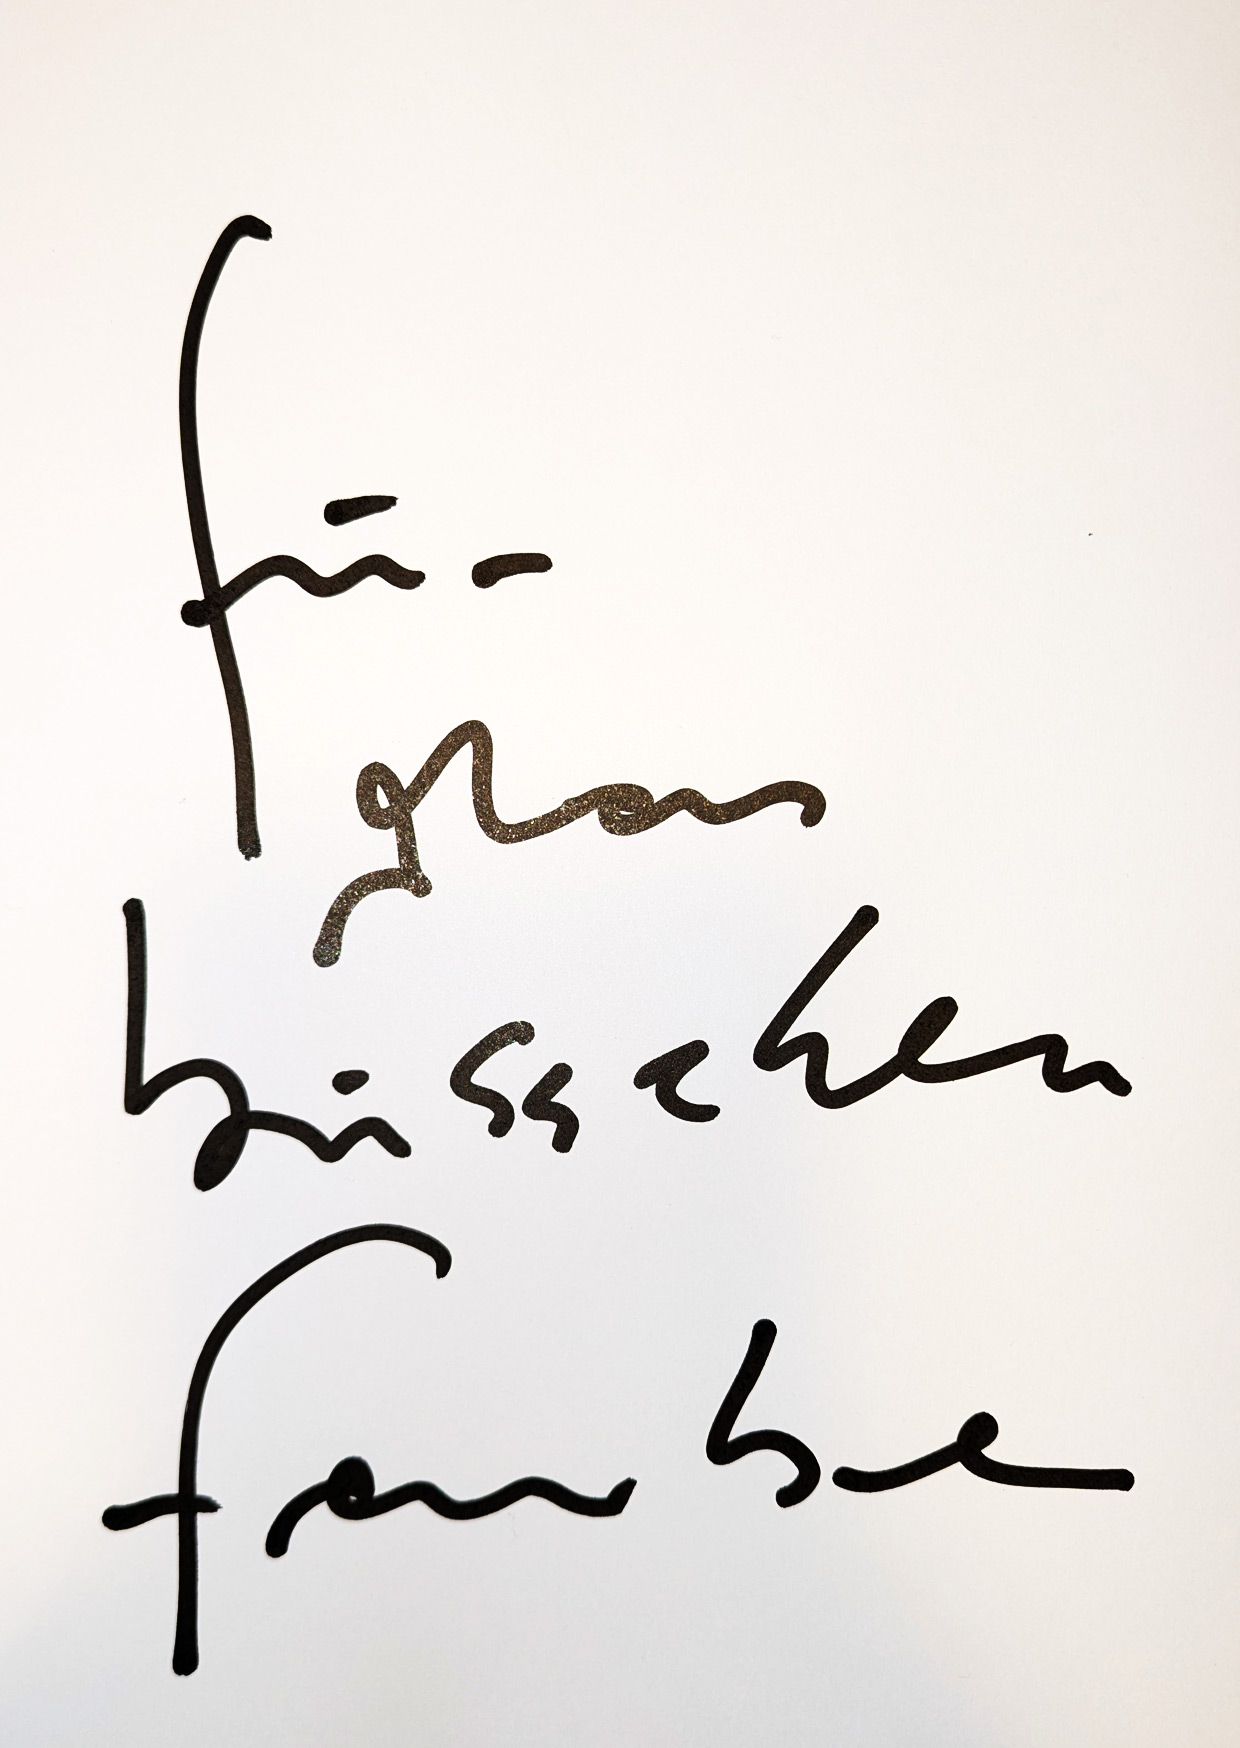 für
glas
bisschen
farbe